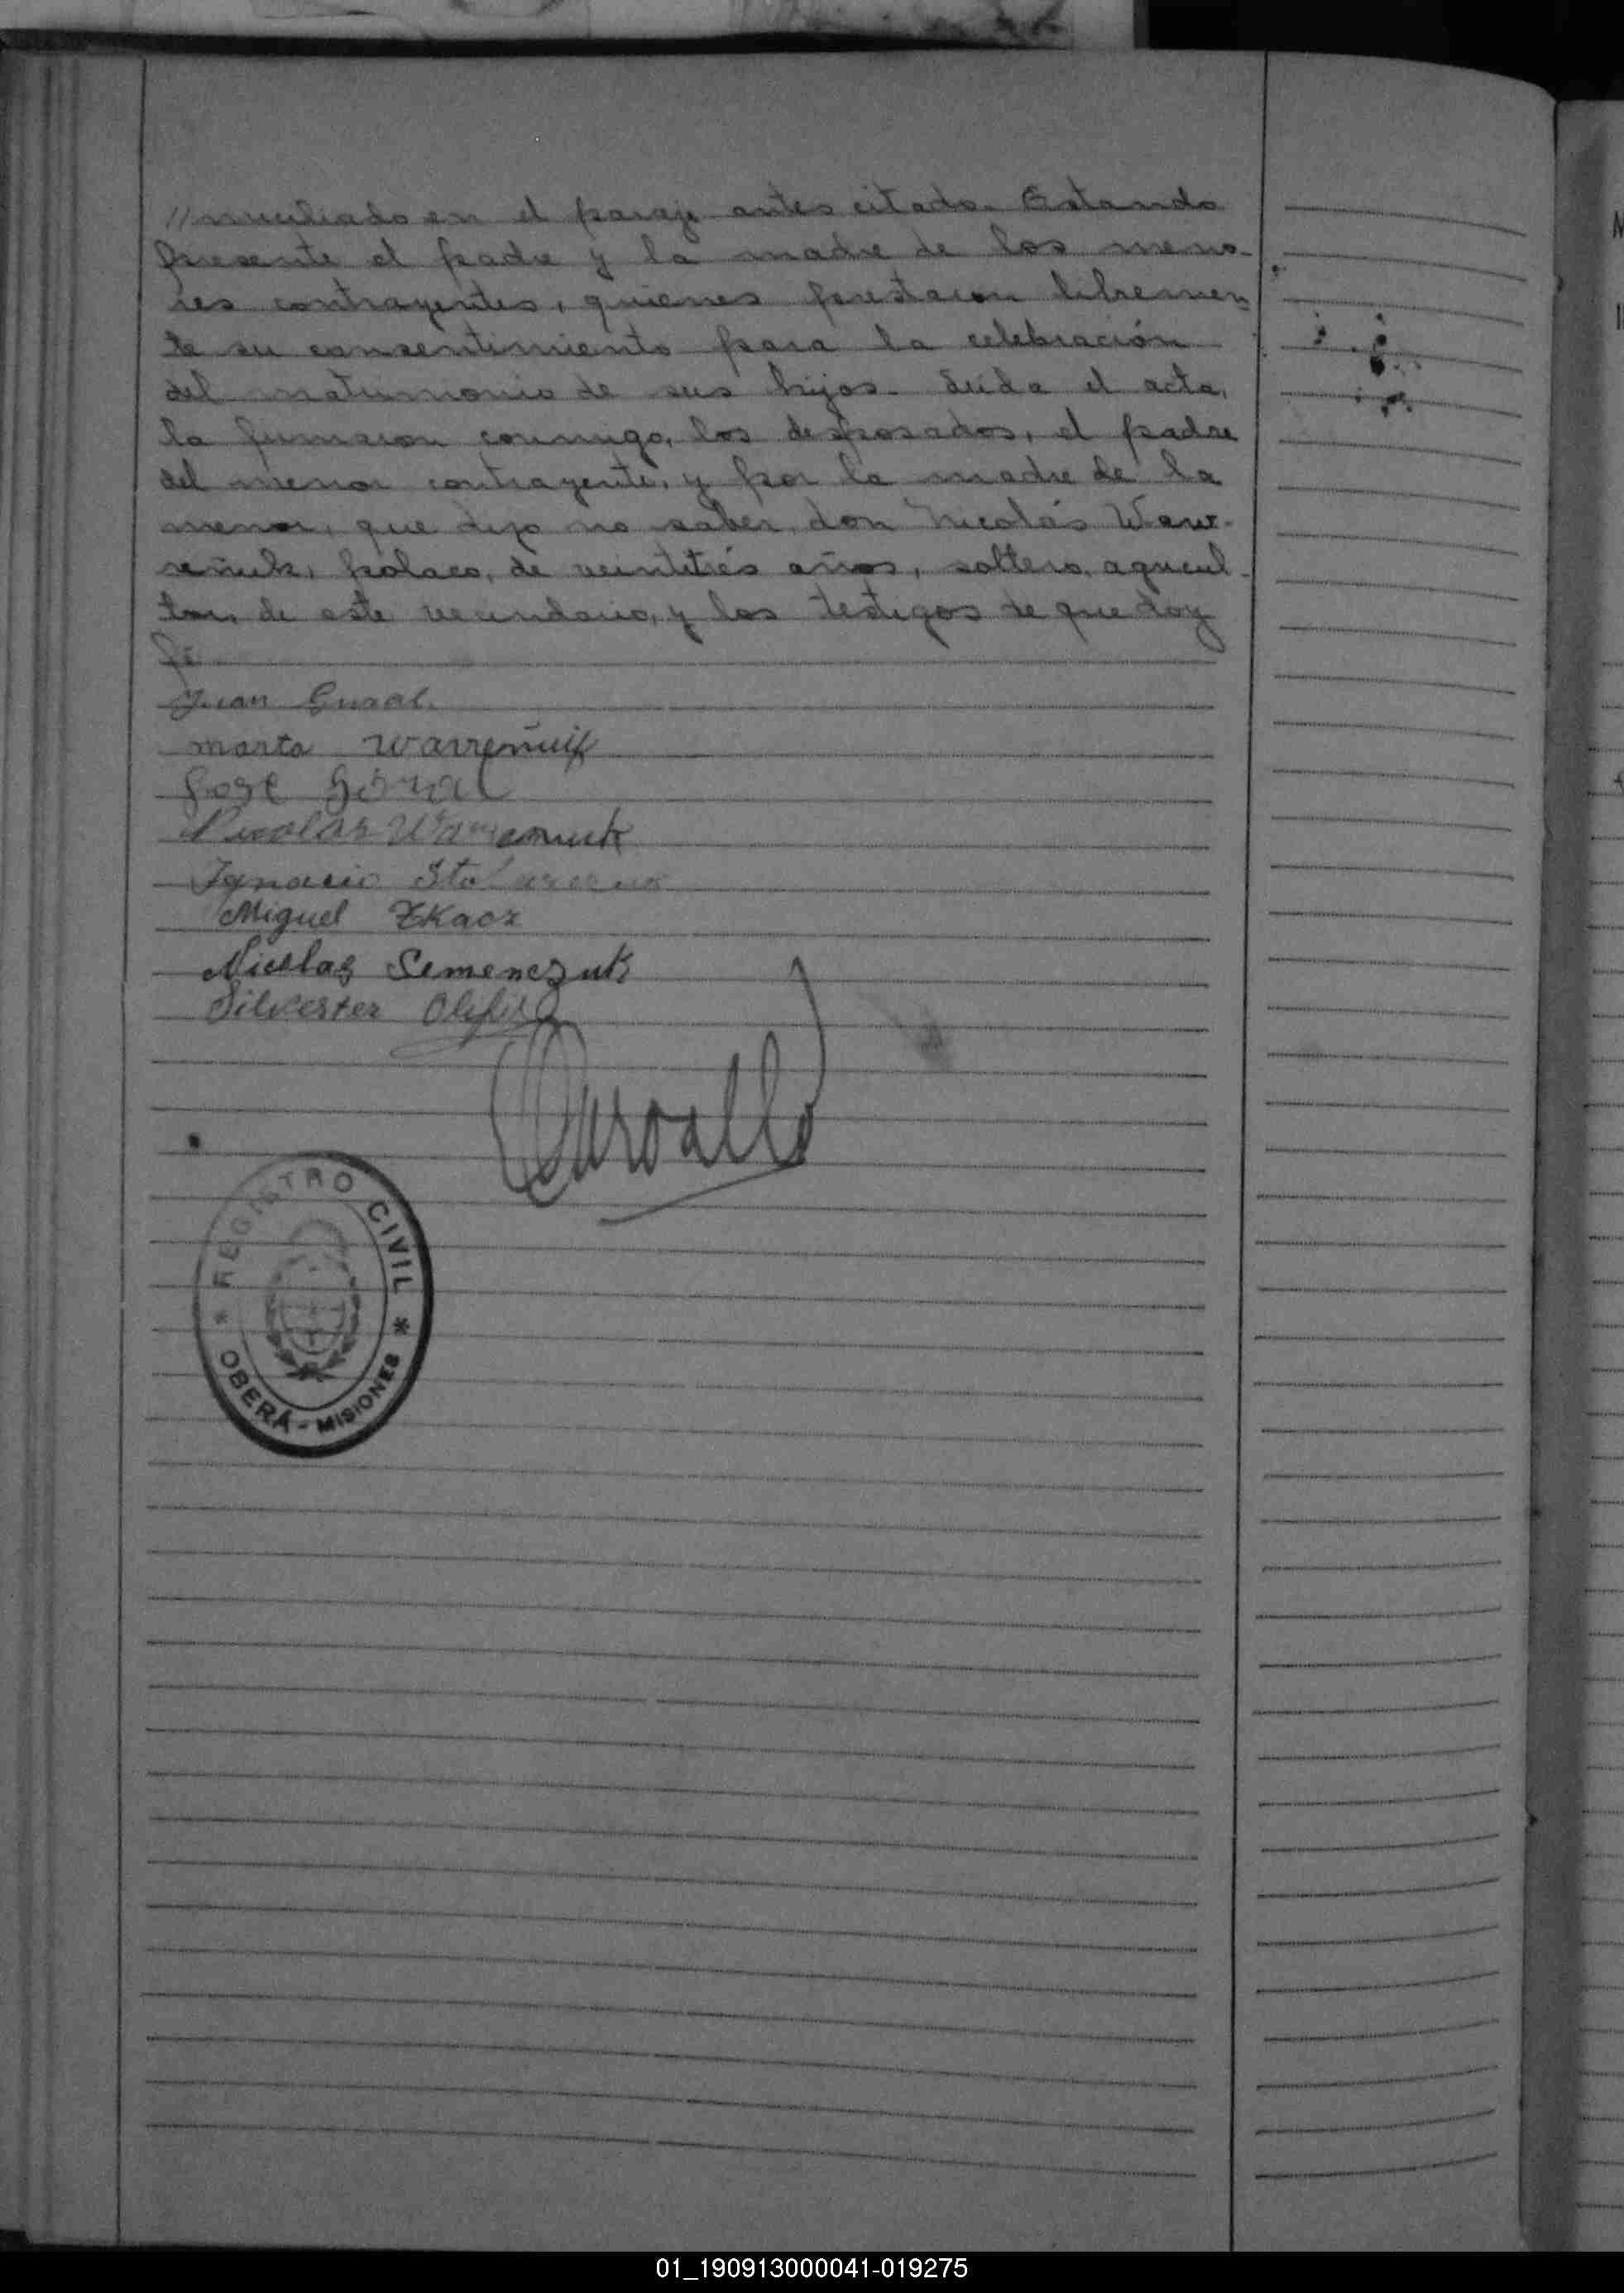 //miciliado en el paraje antes citado. Estando
presente el padre y la madre de los meno-
res contrayentes, quienes prestaron libremen-
te su consentimiento para la celebración
del matrimonio de sus hijos. Leída el acta,
la firmaron conmigo, los desposados, el padre
del menor contrayente, y por la madre de la
menor, que dijo no saber, don Nicolás Waw-
reñuk, polaco, de veintitrés años, soltero, agricul-
tor, de este vecindario, y los testigos de que doy
fé
Juan Gural.
marta Warreñuk
José Góral
Nicolas
Ignacio
Miguel Tkacz
Nicolas Semenczuk
Silvester
Carvallo
REGISTRO CIVIL
* OBERÁ - MISIONES *
01_190913000041-019275